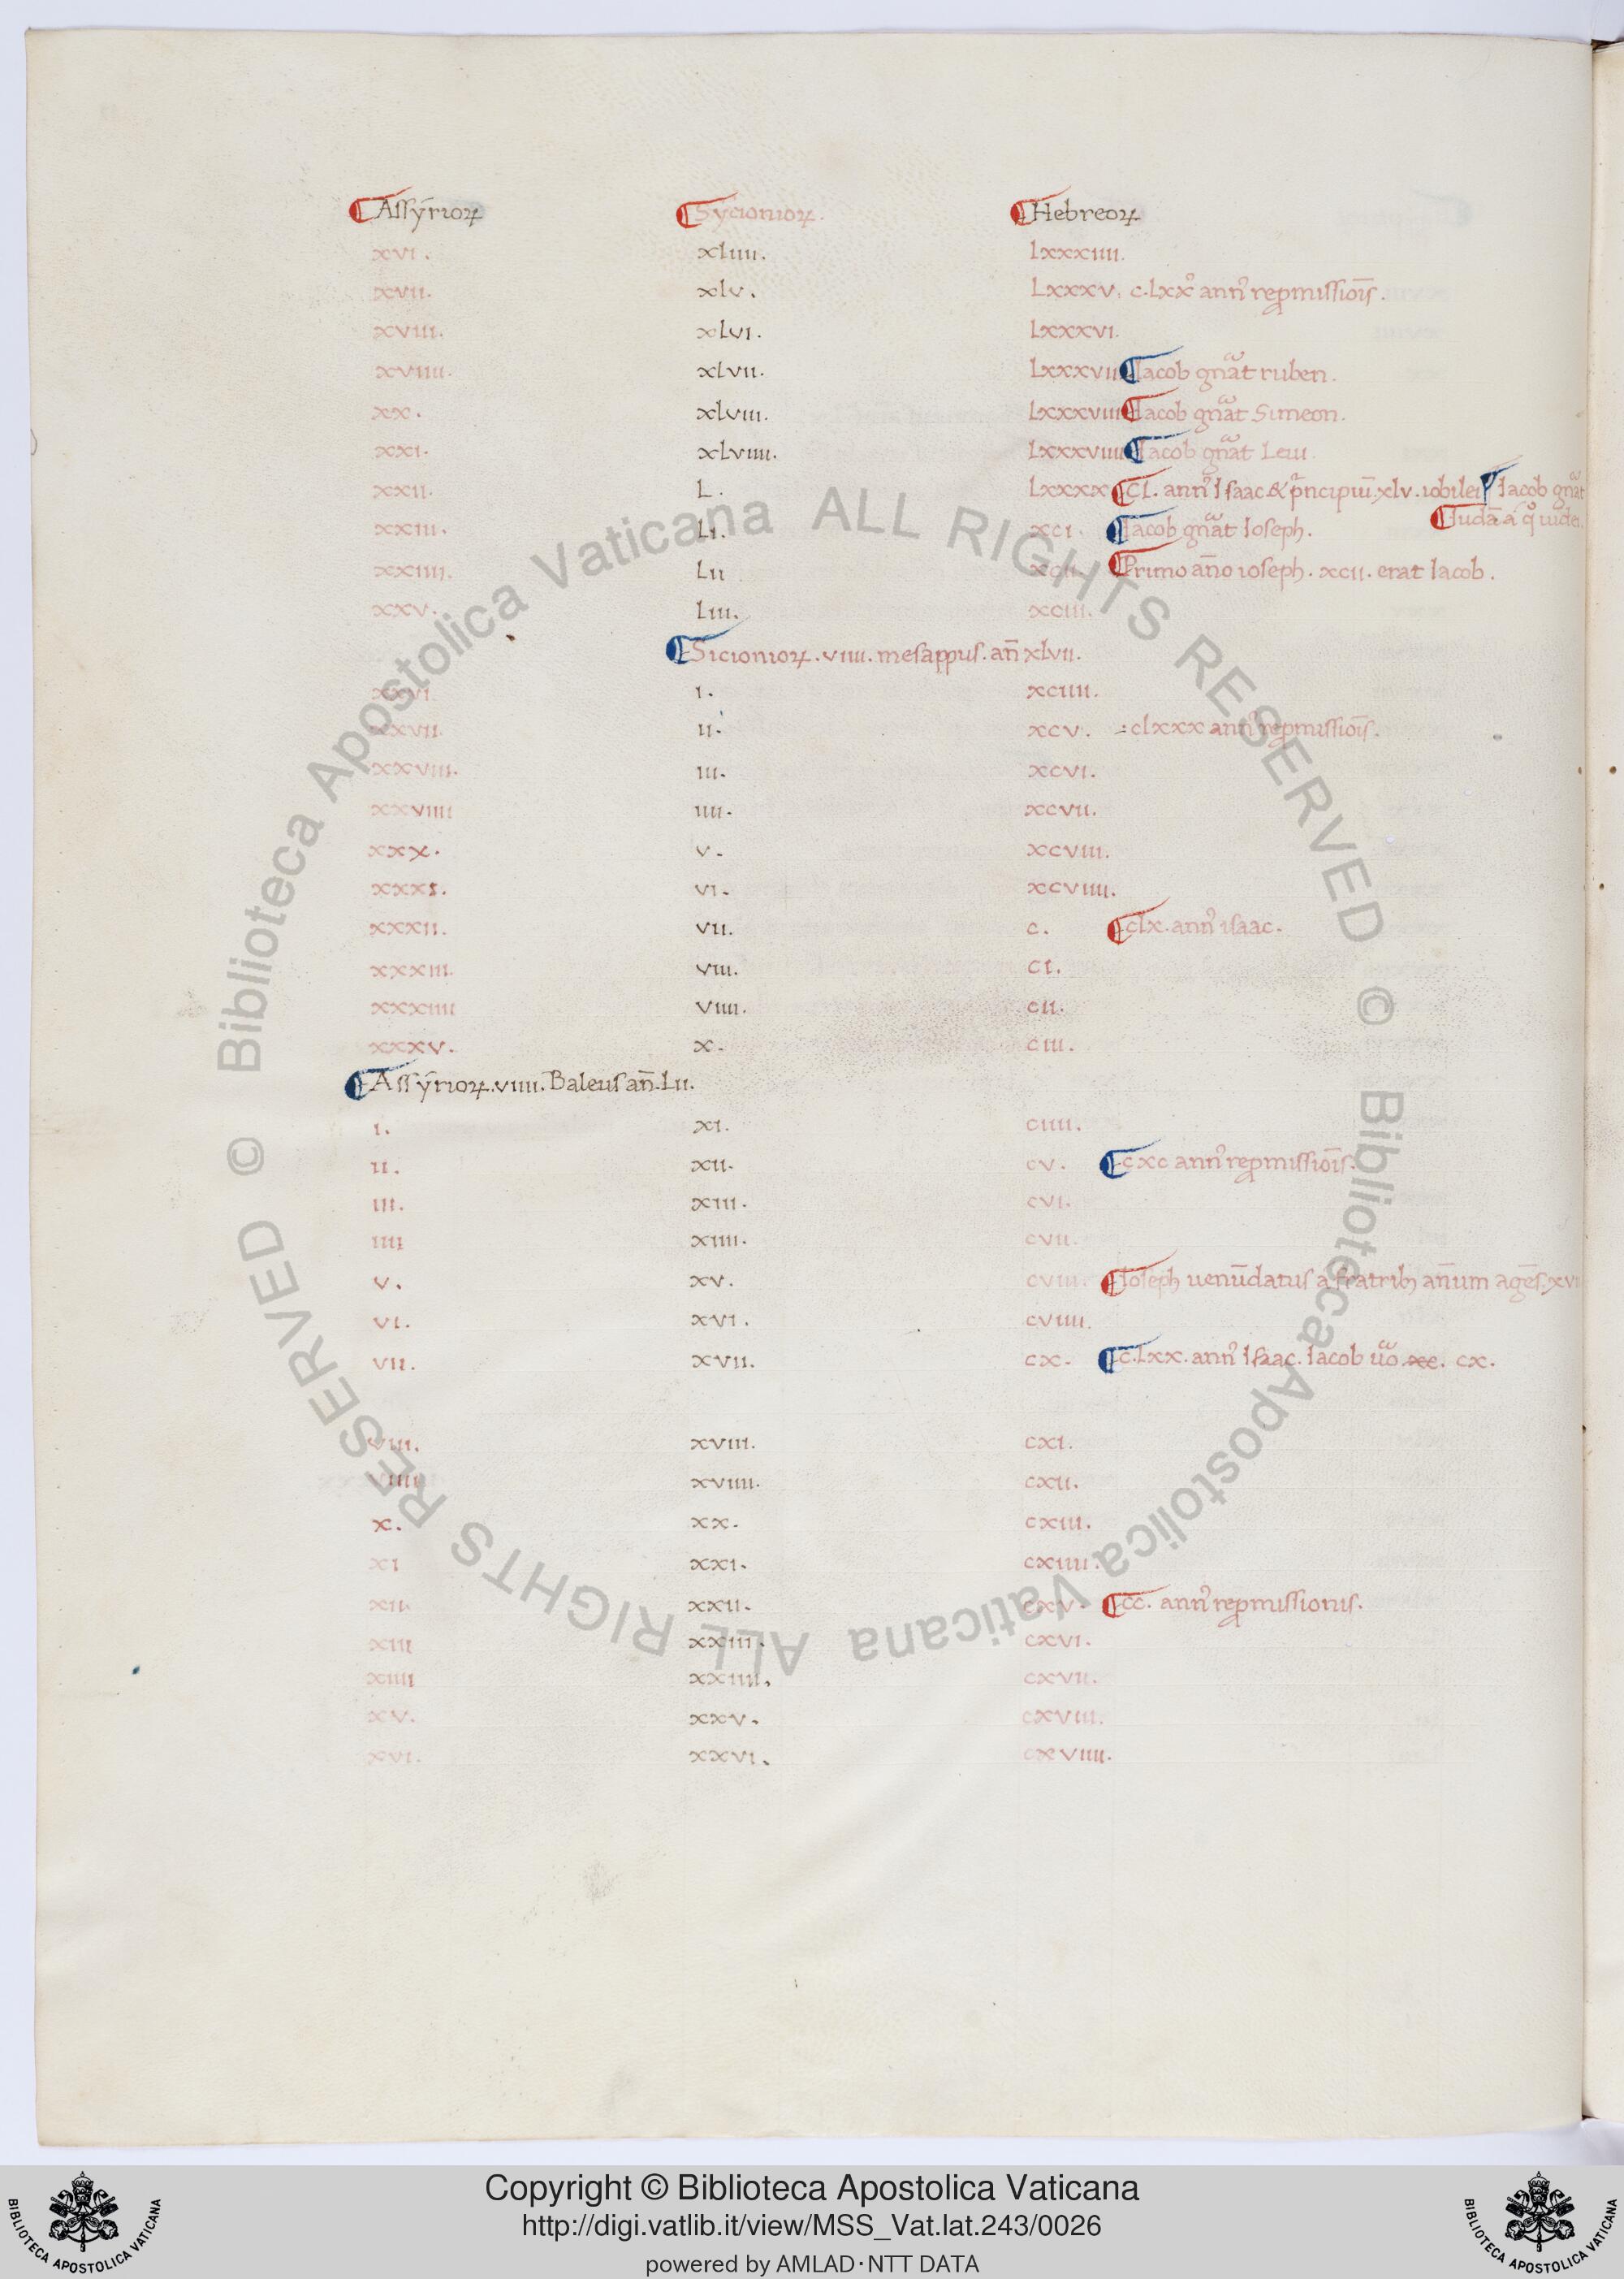 ¶ Assẏrioꝝ ¶ Sycionioꝝ. ¶ Hebreoꝝ
xvi. xliiii. lxxxiiii.
xvii. xlv. lxxxv. c.lxx annꝰ reꝓmissiōis.
xviii. xlvi. lxxxvi.
xviiii. xlvii. lxxxvii ¶ Iacob gn̄at ruben.
xx. xlviii. lxxxviii ¶ Iacob gn̄at Simeon.
xxi. xlviiii. lxxxviiii ¶ Iacob gn̄at Leui.
xxii. L. lxxxx ¶ CL. annꝰ Isaac & p̄ncipiū. xlv. iobilei ¶ Iacob gn̄at
xxiii. Li. xci. ¶ Iacob gn̄at Ioseph. ¶ Iudā a q̊ iudei.
xxiiii. Lii xcii. ¶ Primo an̄o ioseph. xcii. erat Iacob.
xxv. Liii. xciii.
¶ Sicionioꝝ. viiii. mesappus. an̄ xlvii.
xxvi i. xciiii.
xxvii. ii. xcv. :clxxx annꝰ reꝓmissiōis.
xxviii. iii. xcvi.
xxviiii iiii. xcvii.
xxx. v. xcviii.
xxxi. vi. xcviiii.
xxxii. vii. c. ¶ clx. annꝰ isaac.
xxxiii. viii. ci.
xxxiiii viiii. cii.
xxxv. x. ciii.
¶ Assẏrioꝝ. viiii. Baleus an̄. Lii.
i. xi. ciiii.
ii. xii. cv. ¶ cxc annꝰ reꝓmissiōis.
iii. xiii. cvi.
iiii xiiii. cvii.
v. xv. cviii. ¶ Ioseph uenūdatus a fratribꝫ an̄um agēs. xvii
vi. xvi. cviiii.
vii. xvii. cx. ¶ c.lxx. annꝰ Isaac. Iacob ūo. xc. cx.
viii. xviii. cxi.
viiii xviiii. cxii.
x. xx. cxiii.
xi xxi. cxiiii.
xii. xxii. cxv. ¶ cc. annꝰ reꝓmissionis.
xiii xxiii. cxvi.
xiiii xxiiii. cxvii.
xv. xxv. cxviii.
xvi. xxvi. cxviiii.
© Biblioteca Apostolica Vaticana ALL RIGHTS RESERVED
© Biblioteca Apostolica Vaticana ALL RIGHTS RESERVED
Copyright © Biblioteca Apostolica Vaticana
http://digi.vatlib.it/view/MSS_Vat.lat.243/0026
powered by AMLAD·NTT DATA
BIBLIOTECA APOSTOLICA VATICANA
BIBLIOTECA APOSTOLICA VATICANA